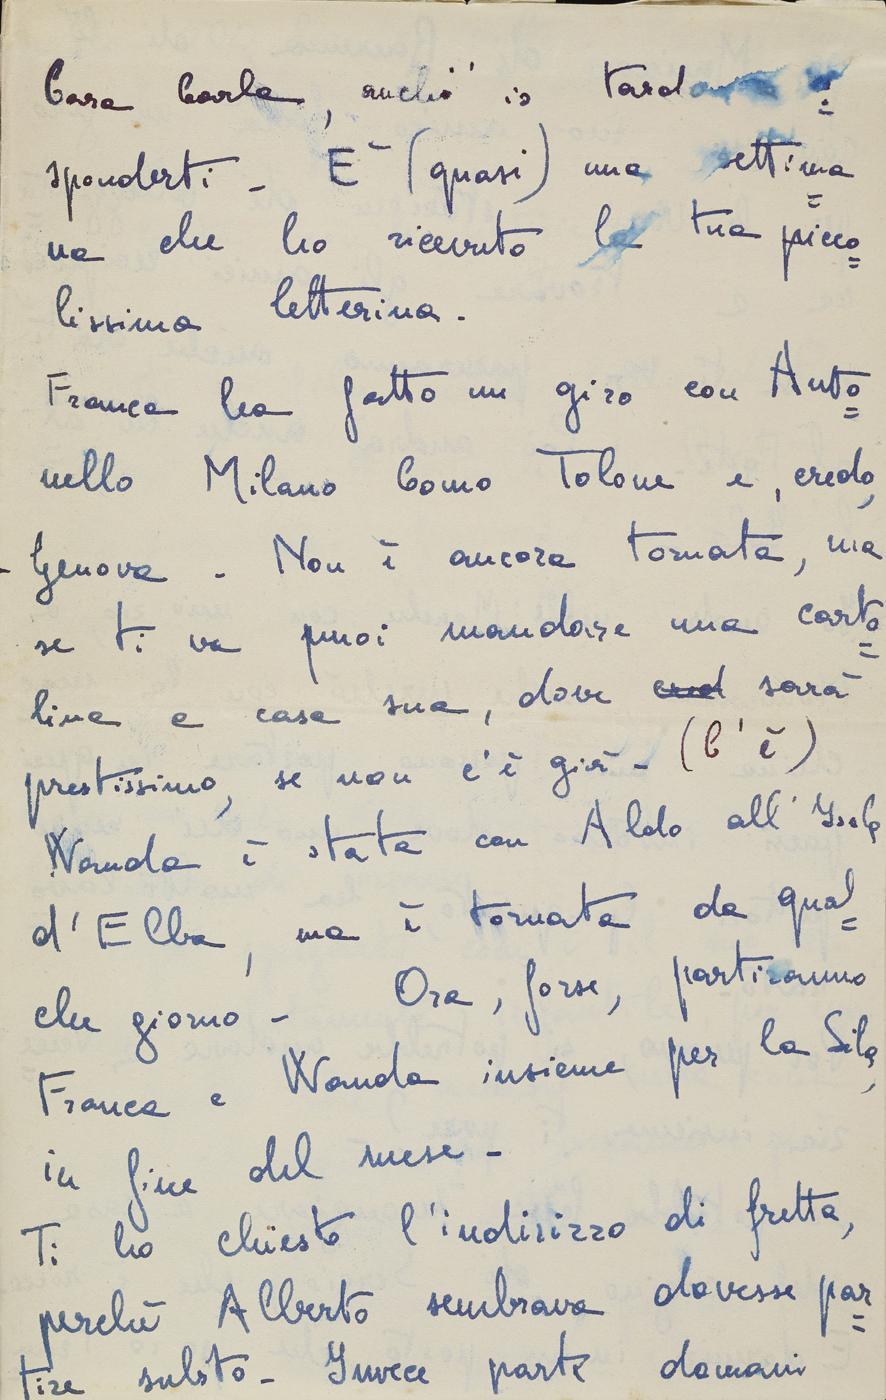 Cara Carla, anch' io tardo a ri=
sponderti - E' (quasi) una settima=
na che ho ricevuto la tua picco=
lissima letterina.
Franca ha fatto un giro con Anto=
nello Milano Como Tolone e, credo,
Genova - Non è ancora tornata, ma
se ti va puoi mandare una carto=
lina a casa sua, dove sarà
prestissimo, se non c'è già - (C'è)
Wanda è stata con Aldo all'Isola
d'Elba, ma è tornata da qual=
che giorno - Ora, forse, partiranno
Franca e Wanda insieme per la Sila,
in fine del mese -
Ti ho chiesto l'indirizzo di fretta,
perchè Alberto sembrava dovesse par=
tire subito - Invece parte domani